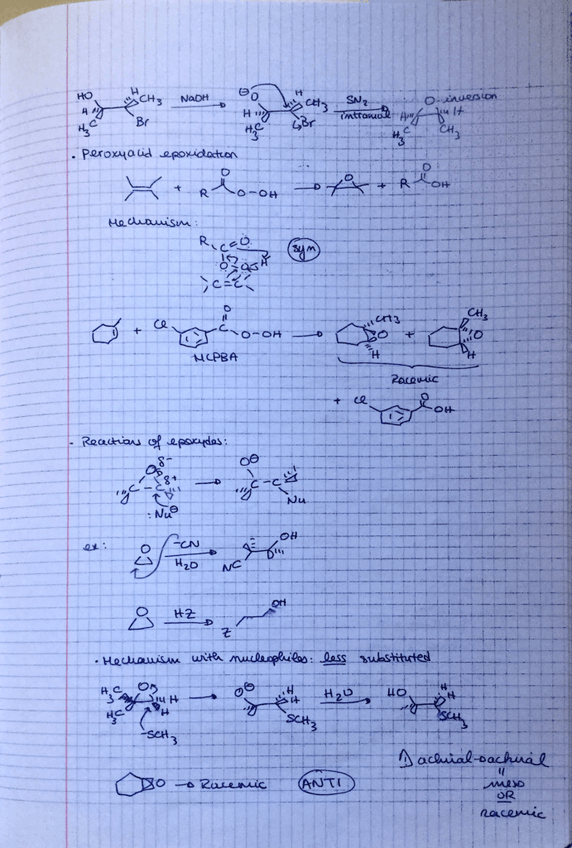 HO H CH₃ NaOH ⊖ O H CH₃ SN₂ O inversion
H H₃C Br H H₃C Br intramol H H₃C CH₃ H
• Peroxyacid epoxidation
+ R O O-OH → O + R O OH
Mechanism:
R C=O syn
O O H
C=C
+ Cl C O O-OH → CH₃ O H + CH₃ O H
MCPBA
Racemic
+ Cl O OH
• Reactions of epoxydes:
O δ- δ+ C C → O⊖ C-C Nu
:Nu⊖
ex: O ⁻CN H₂O NC OH
O HZ Z OH
• Mechanism with nucleophiles: less substituted
H₃C O H H₃C H → O⊖ H H SCH₃ H₂O HO H H SCH₃
⁻SCH₃
O → Racemic ANTI
1) achiral → achiral
"
meso
OR
racemic